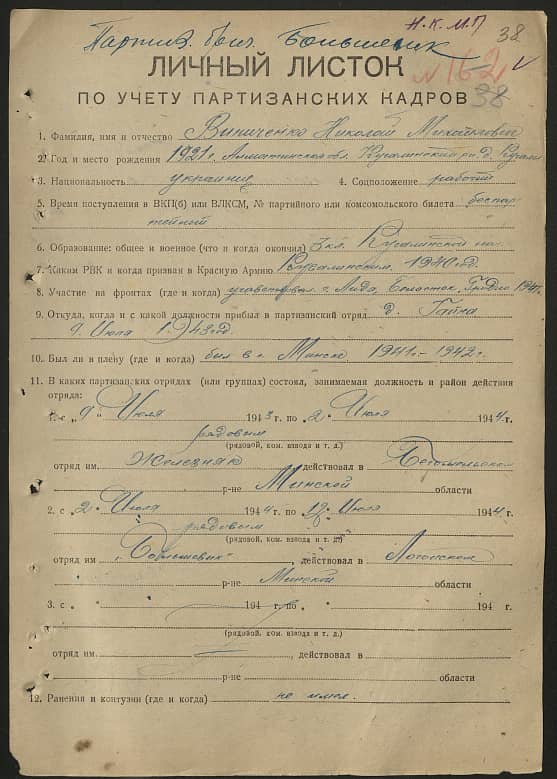 Н.К.М.П
38
Партиз. бриг. Большевик
ЛИЧНЫЙ ЛИСТОК
№ 162
ПО УЧЕТУ ПАРТИЗАНСКИХ КАДРОВ 38
1. Фамилия, имя и отчество Виниченко Николай Михайлович
2. Год и место рождения 1921 г. Алматинская обл. Кугалинский рн. д. Кугалы
3. Национальность украинец 4. Соцположение рабочий
5. Время поступления в ВКП(б) или ВЛКСМ, № партийного или комсомольского билета беспар
тейный
6. Образование: общее и военное (что и когда окончил) 3 кл. Кугалинской
7. Каким РВК и когда призван в Красную Армию Кугалинским 1940 год.
8. Участие на фронтах (где и когда) участвовал г. Лида, Белосток, Гродно 1941 г.
9. Откуда, когда и с какой должности прибыл в партизанский отряд д. Гайна
9. Июля 1943 год
10. Был ли в плену (где и когда) был в г. Минск 1941 г. - 1942 г.
11. В каких партизанских отрядах (или группах) состоял, занимаемая должность и район действия
отряда:
1. с „ 9 “ Июля 1943 г. по „ 2 “ Июля 1944 г.
рядовым
(рядовой, ком. взвода и т. д.)
отряд им. Железняк действовал в Бегомельском
р-не Минской области
2. с „ 2 “ Июля 1944 г. по „ 19 “ Июля 1944 г.
рядовым
(рядовой, ком. взвода и т. д.)
отряд им „Большевик“ , действовал в Логойском
р-не Минской области
3. с „ “ 194 г. по „ “ 194 г.
(рядовой, ком. взвода и т. д.)
отряд им. , действовал в
р-не области
12. Ранения и контузии (где и когда) не имел.